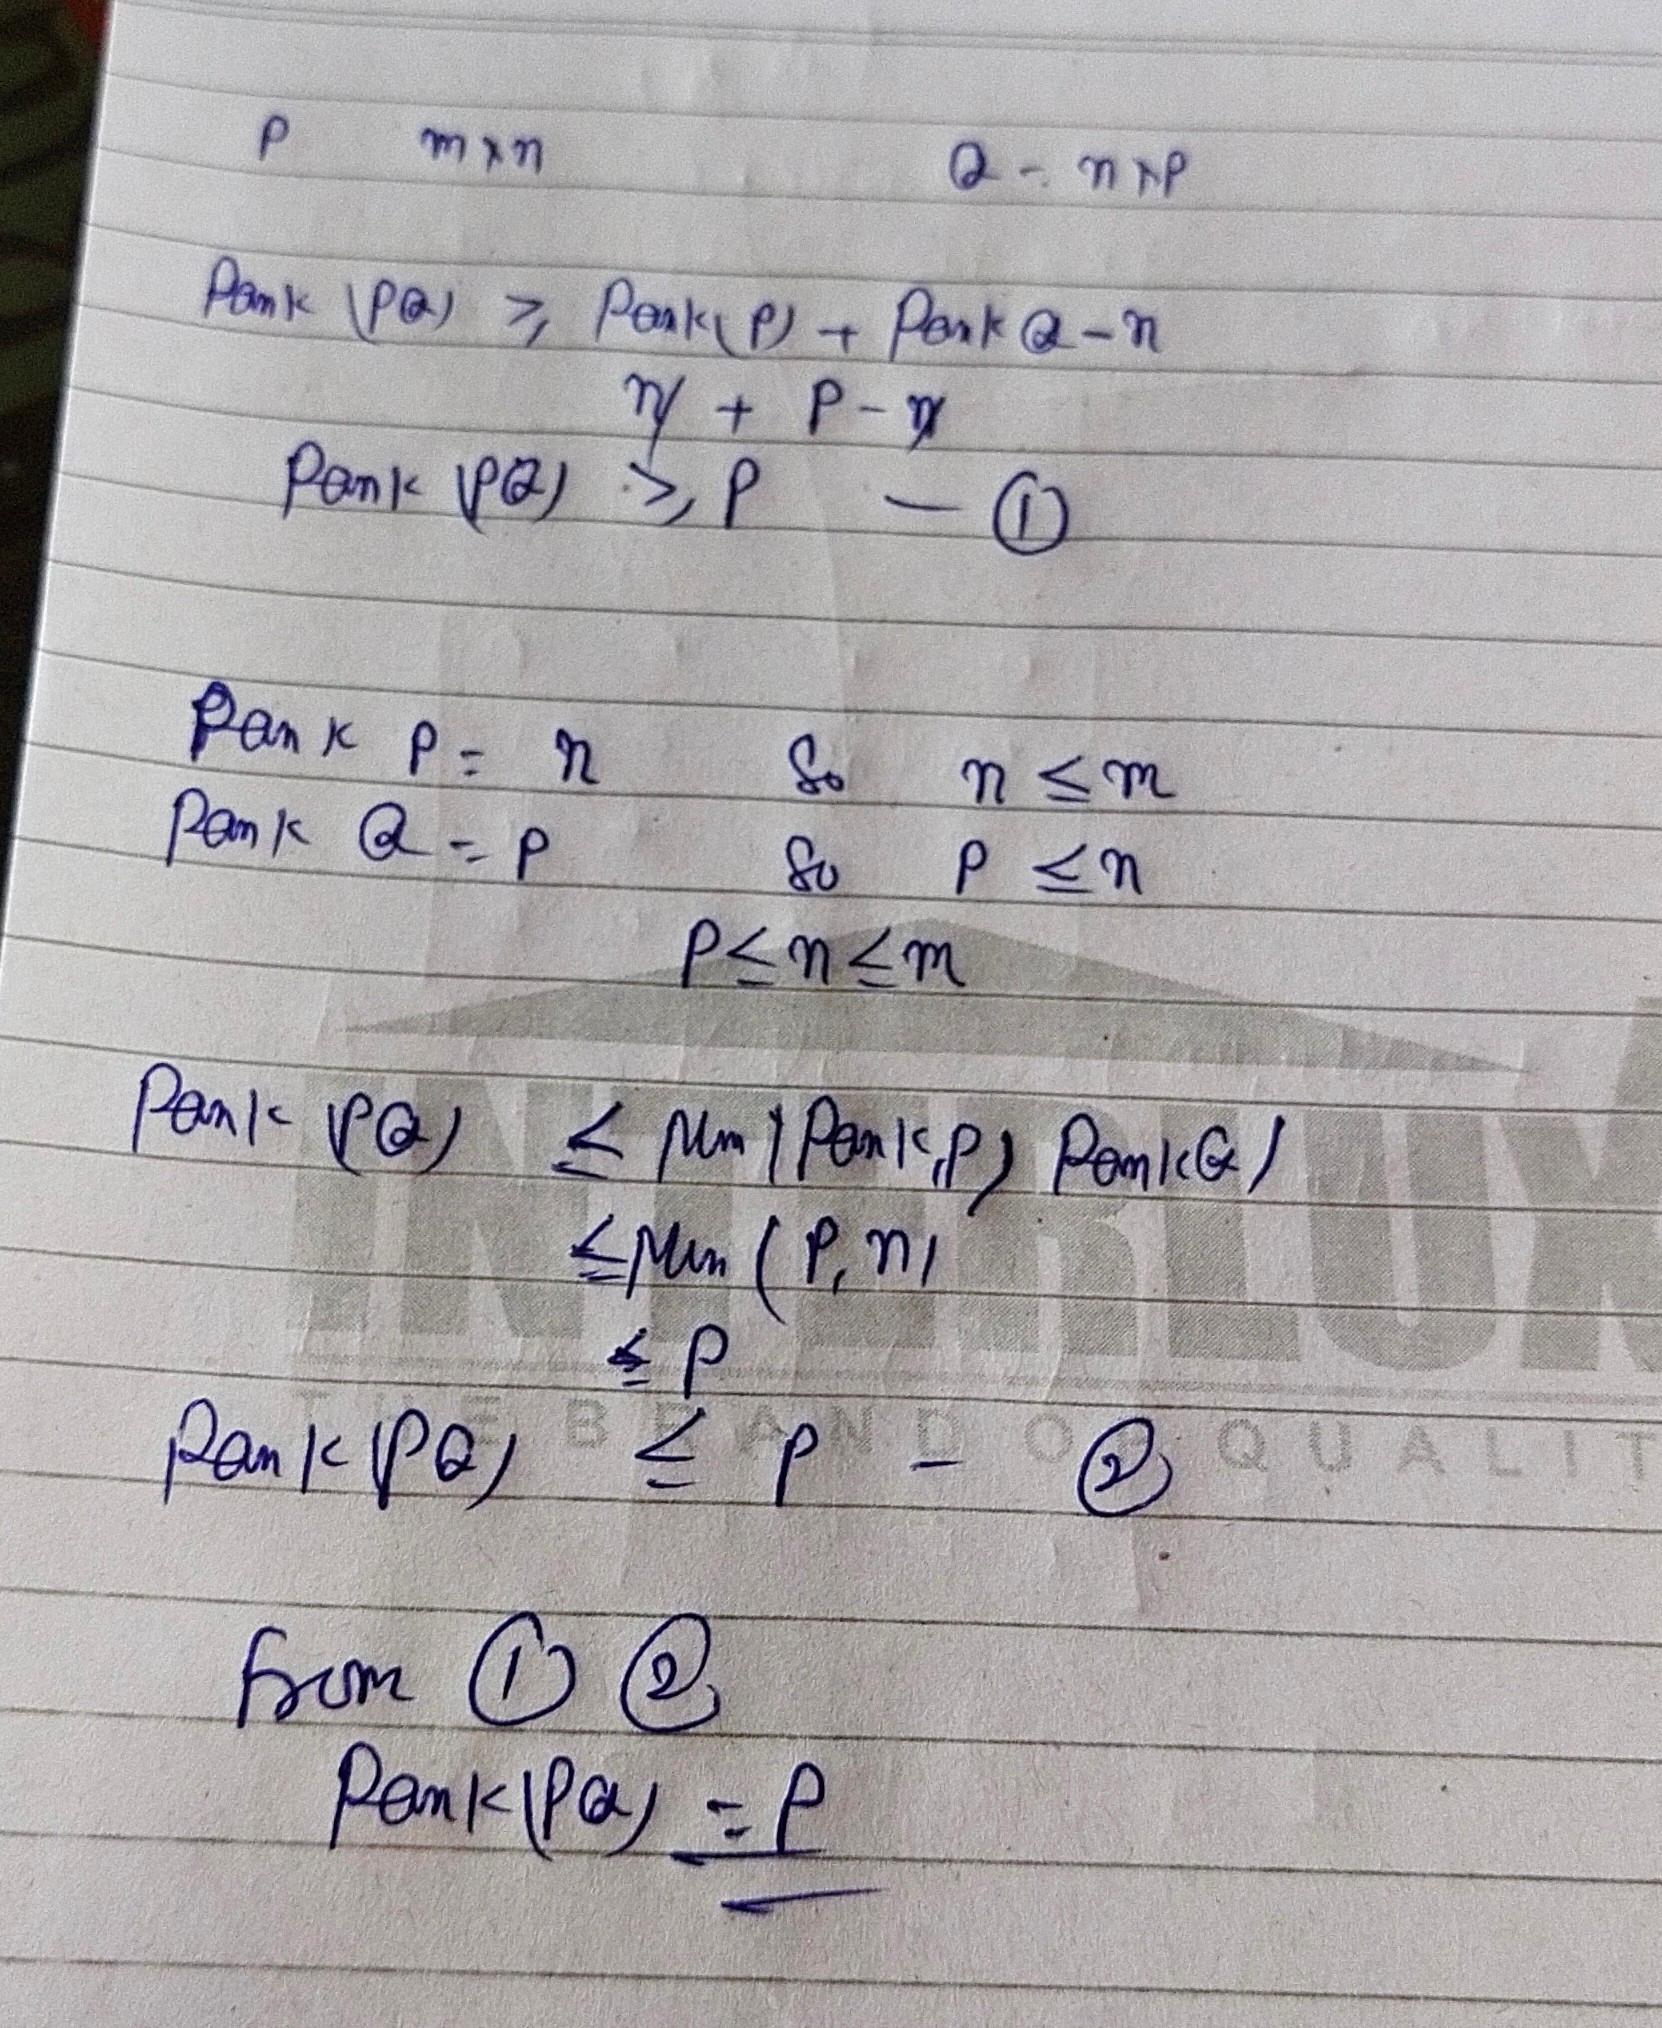 P m×n Q - n×P
Rank (PQ) ≥ Rank(P) + Rank Q - n
n + P - n
Rank (PQ) ≥ P — ①
Rank P = n So n ≤ m
Rank Q = P So P ≤ n
P ≤ n ≤ m
Rank (PQ) ≤ Min (Rank P, Rank Q)
≤ Min (P, n)
≤ P
Rank (PQ) ≤ P - ②
From ① ②
Rank (PQ) = P
INTERLUX
THE BRAND OF QUALIT